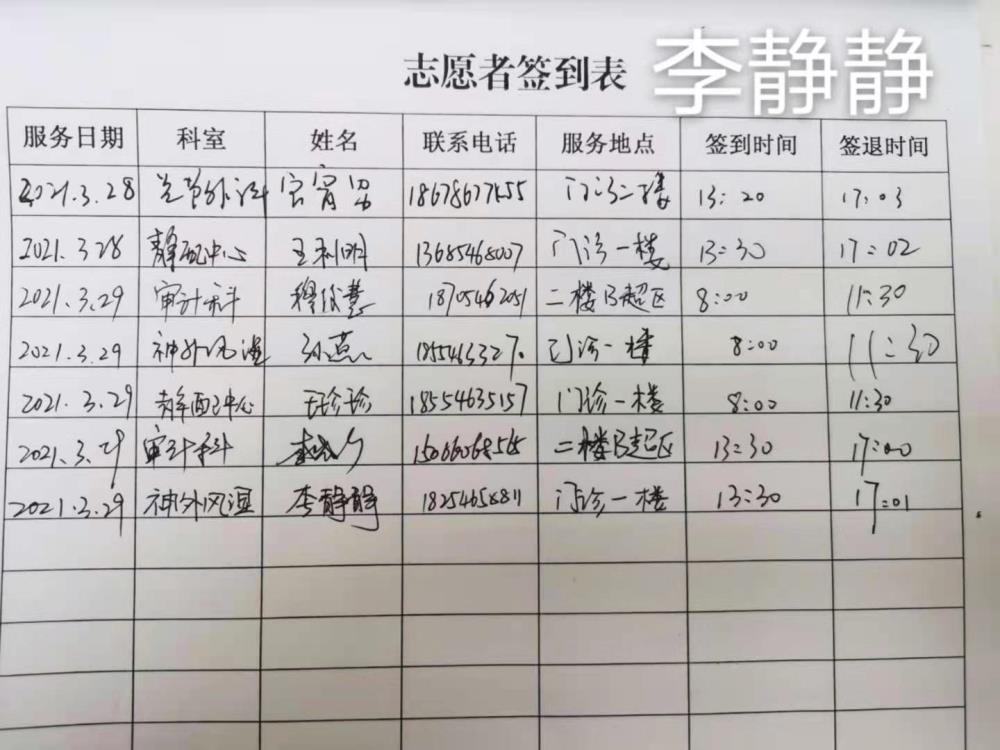 志愿者签到表 李静静
服务日期 科室 姓名 联系电话 服务地点 签到时间 签退时间
2021.3.28 关节外科 门诊二楼 13:20 17:03
2021.3.28 静配中心 王利明 13685468007 门诊一楼 13:30 17:02
2021.3.29 审计科 二楼B超区 8:00 11:30
2021.3.29 神外风湿 门诊一楼 8:00 11:30
2021.3.29 静配中心 珍珍 18554635157 门诊一楼 8:00 11:30
2021.3.29 审计科 二楼B超区 13:30 17:00
2021.3.29 神外风湿 李静静 门诊一楼 13:30 17:01